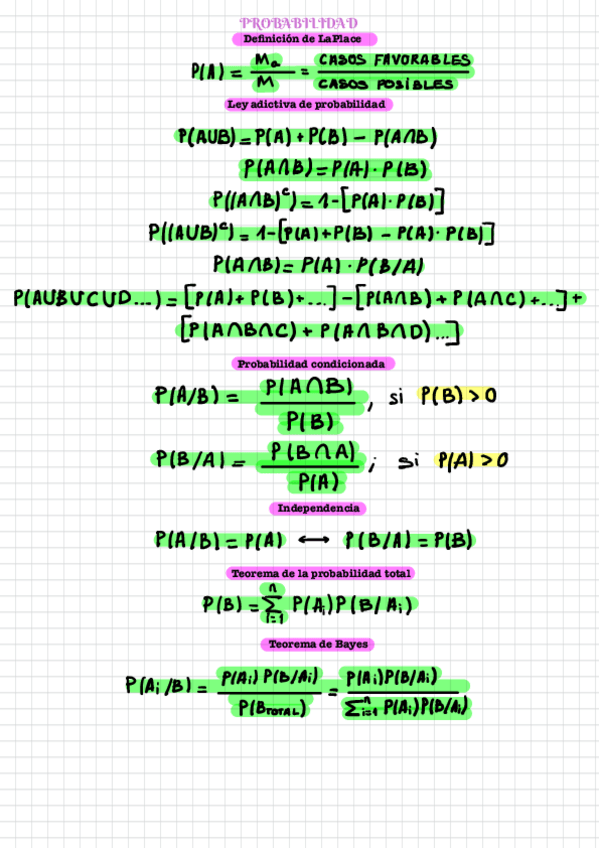 PROBABILIDAD
Definición de LaPlace
P(A) = Ma/M = CASOS FAVORABLES/CASOS POSIBLES
Ley adictiva de probabilidad
P(AUB) = P(A) + P(B) - P(A∩B)
P(A∩B) = P(A) · P(B)
P((A∩B)ᶜ) = 1-[P(A)·P(B)]
P((AUB)ᶜ) = 1-[P(A)+P(B) - P(A)·P(B)]
P(A∩B) = P(A) · P(B/A)
P(AUBUCUD...) = [P(A)+P(B)+...] - [P(A∩B) + P(A∩C)+...] +
[P(A∩B∩C) + P(A∩B∩D)...]
Probabilidad condicionada
P(A/B) = P(A∩B)/P(B), si P(B) > 0
P(B/A) = P(B∩A)/P(A); si P(A) > 0
Independencia
P(A/B) = P(A) ⟷ P(B/A) = P(B)
Teorema de la probabilidad total
P(B) = ∑ⁿᵢ₌₁ P(Aᵢ)P(B/Aᵢ)
Teorema de Bayes
P(Aᵢ/B) = P(Aᵢ)P(B/Aᵢ)/P(B_TOTAL) = P(Aᵢ)P(B/Aᵢ)/∑ⁿᵢ₌₁ P(Aᵢ)P(B/Aᵢ)